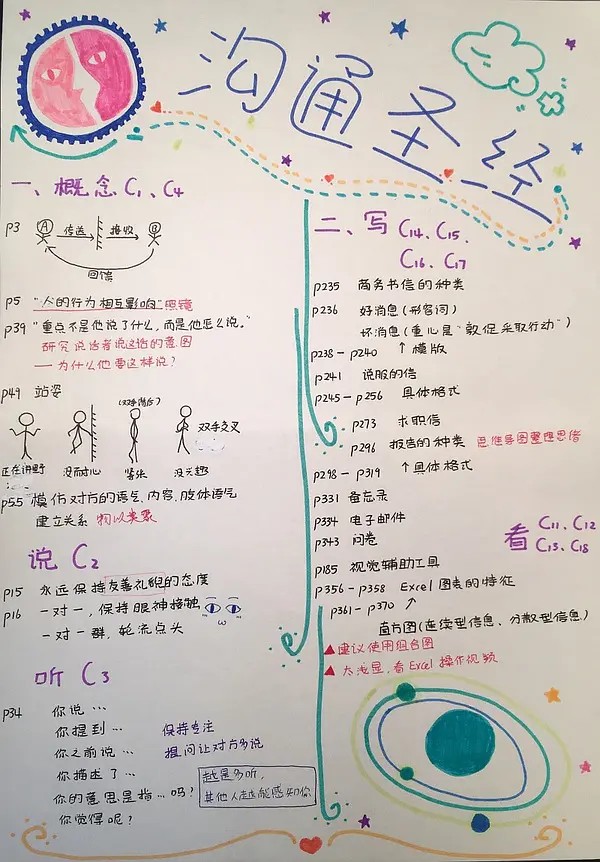 沟通圣经
一、概念 C1、C4
p3 A 传送 接收 B
回馈
p5 "人的行为相互影响" 照镜
p39 "重点不是他说了什么,而是他怎么说。"
研究说话者说这话的意图
—为什么他要这样说?
p49 站姿
(双手背后)
双手交叉
正在讲野 没耐心 紧张 没兴趣
p55 模仿对方的语气、内容、肢体语气
建立关系 物以类聚
说 C2
p15 永远保持友善礼貌的态度
p16 一对一,保持眼神接触
一对一群,轮流点头
听 C3
p34 你说…
你提到… 保持专注
你之前说… 提问让对方多说
你描述了…
越是多听,
其他人越能感知你
你的意思是指…吗?
你觉得呢?
二、写 C14、C15、
C16、C17
p235 商务书信的种类
p236 好消息(形容词)
坏消息(重心是"敦促采取行动")
p238-p240 ↑模版
p241 说服的信
p245-p256 具体格式
p273 求职信
p296 报告的种类 思维导图整理思绪
p298-p319 ↑具体格式
p331 备忘录
p334 电子邮件
p343 问卷
看 C11、C12
C13、C18
p185 视觉辅助工具
p356-p358 Excel 图表的特征
p361-p370 ↗
直方图(连续型信息、分散型信息)
▲建议使用组合图
▲太浅显,看Excel操作视频